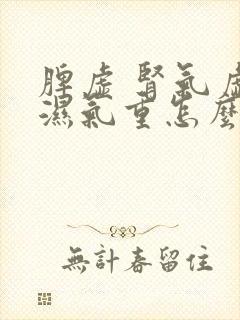 脾虛 腎氣虛
濕氣重怎麼
無計春留住